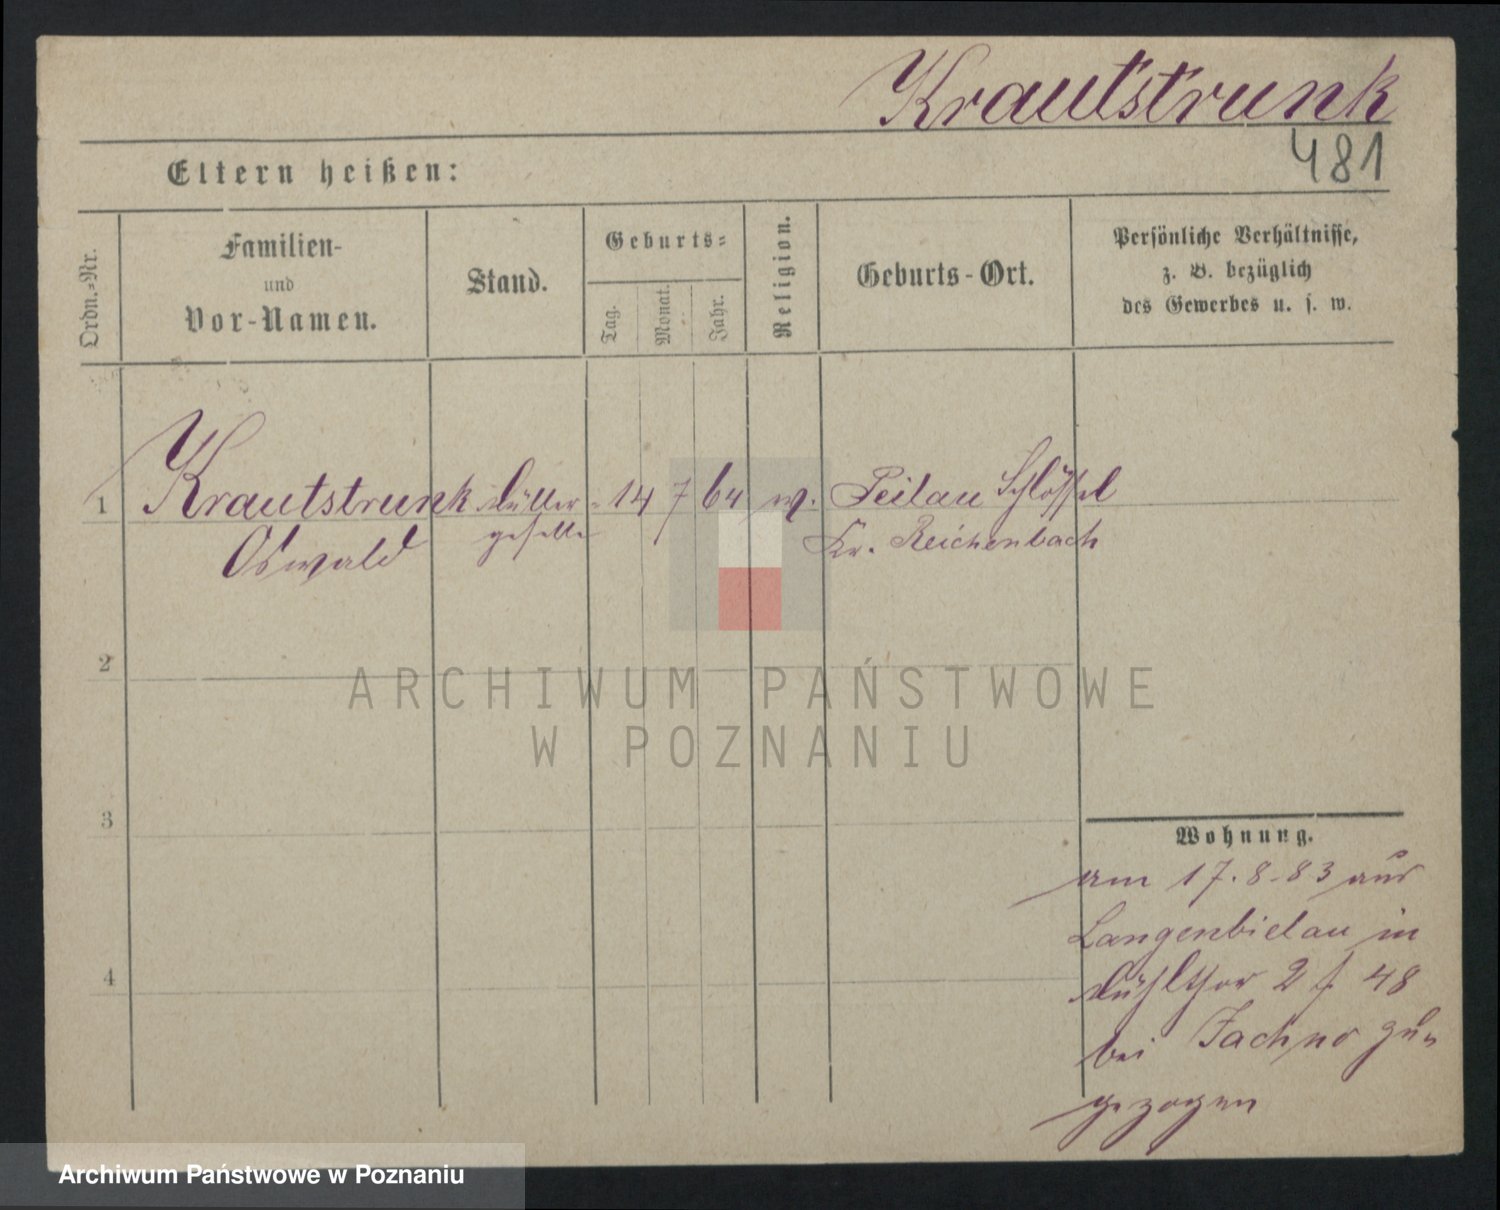 Krautstrunk
481
Eltern heißen:
Ordn.-Nr.
Familien-
und
Vor-Namen.
Stand.
Geburts-
Tag.
Monat.
Jahr.
Religion.
Geburts-Ort.
Persönliche Verhältnisse,
z. B. bezüglich
des Gewerbes u. s. w.
1 Krautstrunk Müller- 14 7 64 Peilau Schlössel
Oswald geselle Kr. Reichenbach
2
ARCHIWUM PAŃSTWOWE
W POZNANIU
3
Wohnung.
am 17.8.83 aus
Langenbielau in
Mühlthor 2 f 48
bei zu-
4
gezogen
Archiwum Państwowe w Poznaniu